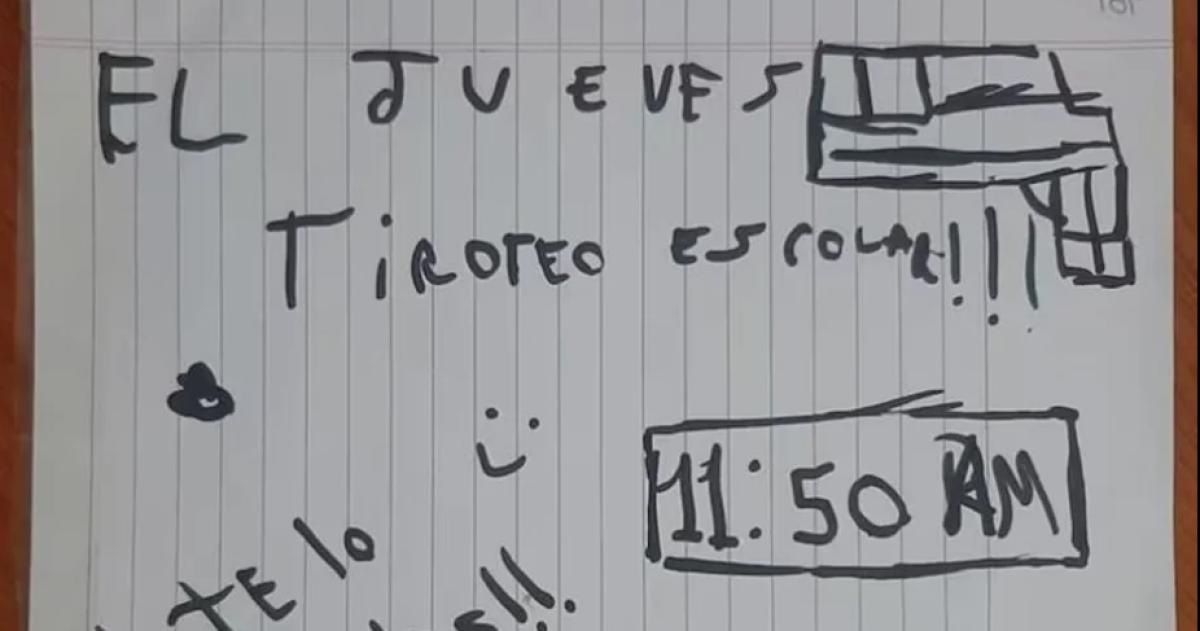 EL JUEVES
TiROTEO ESCOLAR!!!
11:50 AM
TE lo